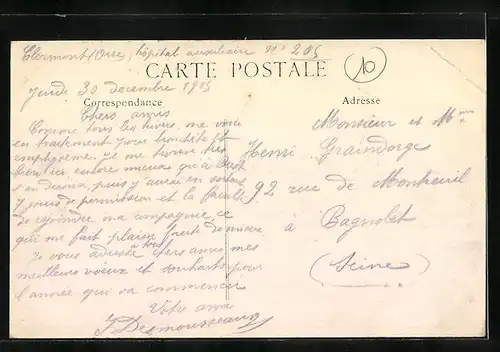 Clermont, Oise, hôpital auxiliaire n° 205
10
CARTE POSTALE
Jeudi 30 décembre 1915
Correspondance
Adresse
Chers amis
Comme tous les hivers, me voici
en traitement pour bronchite et
emphysème. Je me trouve très
bien ici, encore mieux qu'à
puis j'aurai en sortant
7 jours de permission et la
de rejoindre ma compagnie, ce
qui me fait plaisir faute de mieux
Je vous adresse à tous chers amis mes
meilleurs vœux et souhaits pour
l'année qui va commencer
Votre ami
J. Desmousseaux
Monsieur et Mme
Henri Graindorge
92 rue de Montreuil
à Bagnolet
(Seine)